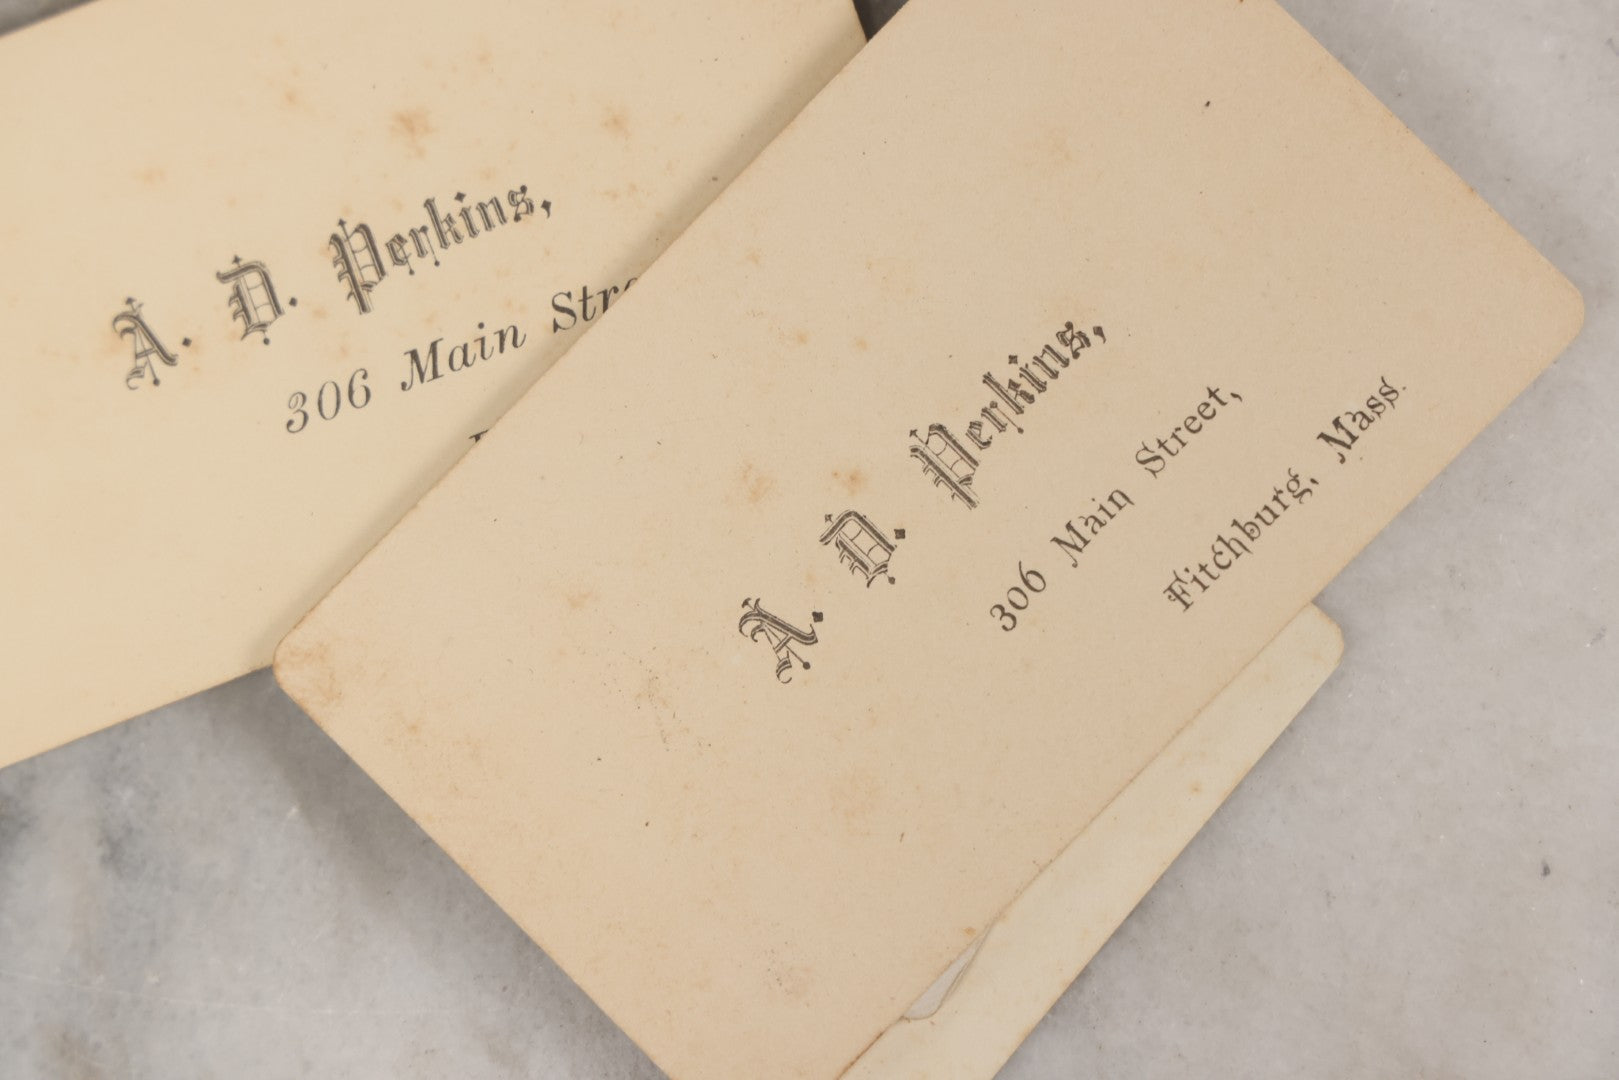 A. D. Perkins,
306 Main Stre
A. D. Perkins,
306 Main Street,
Fitchburg, Mass.